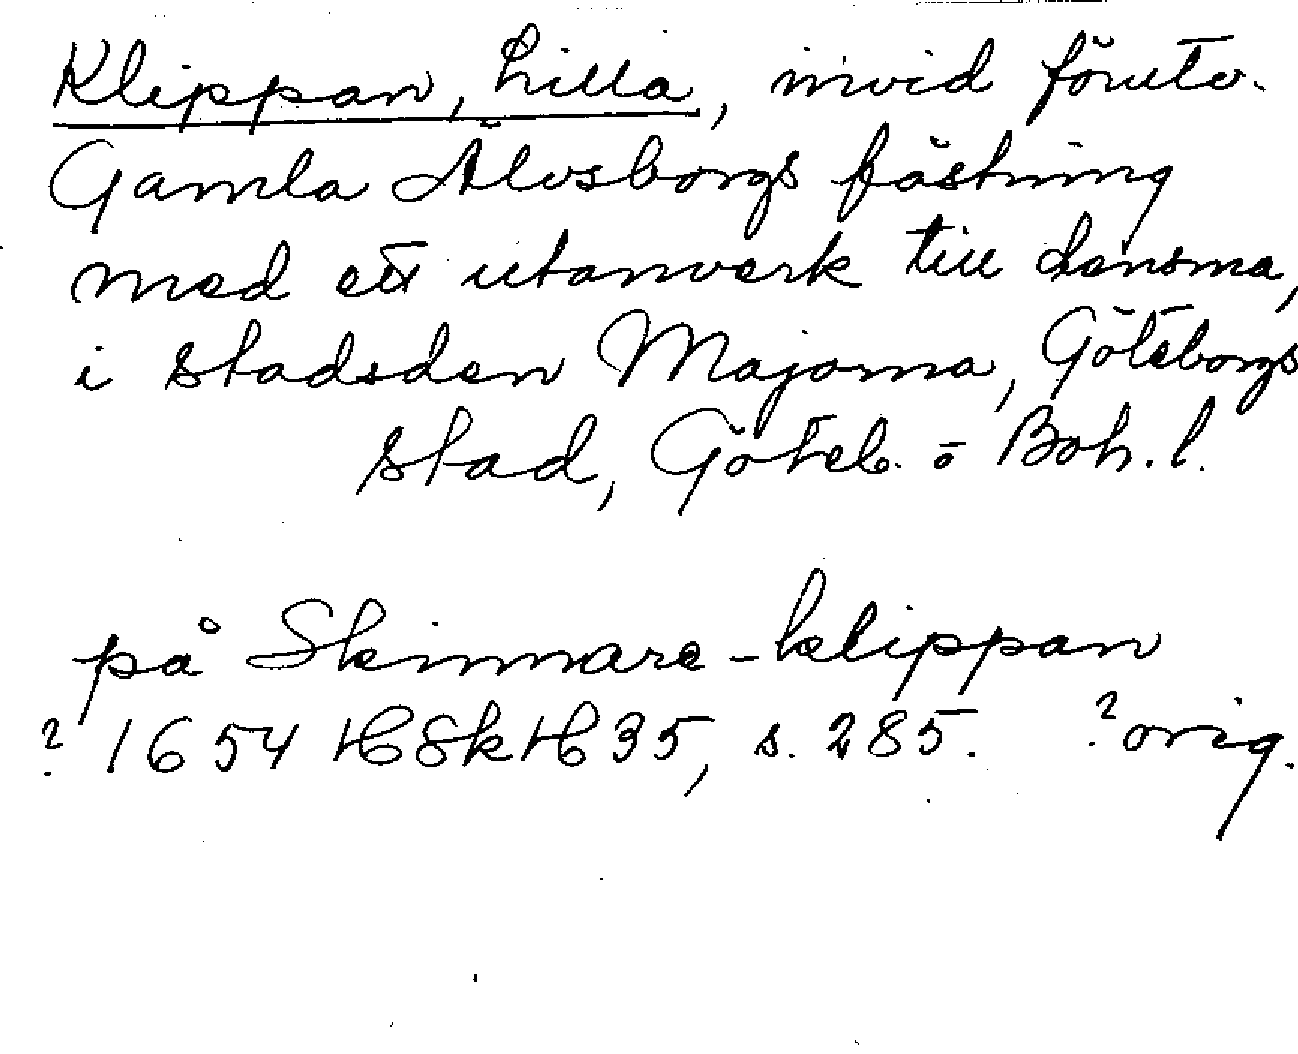 Klippan, Lilla, invid förutv.
Gamla Älvsborgs fästning
med ett utanverk till densma,
i stadsden Majorna, Göteborgs
stad, Göteb. o Boh. l.
på Skinnare-klippan
? 1654 35, s. 285. ? orig.